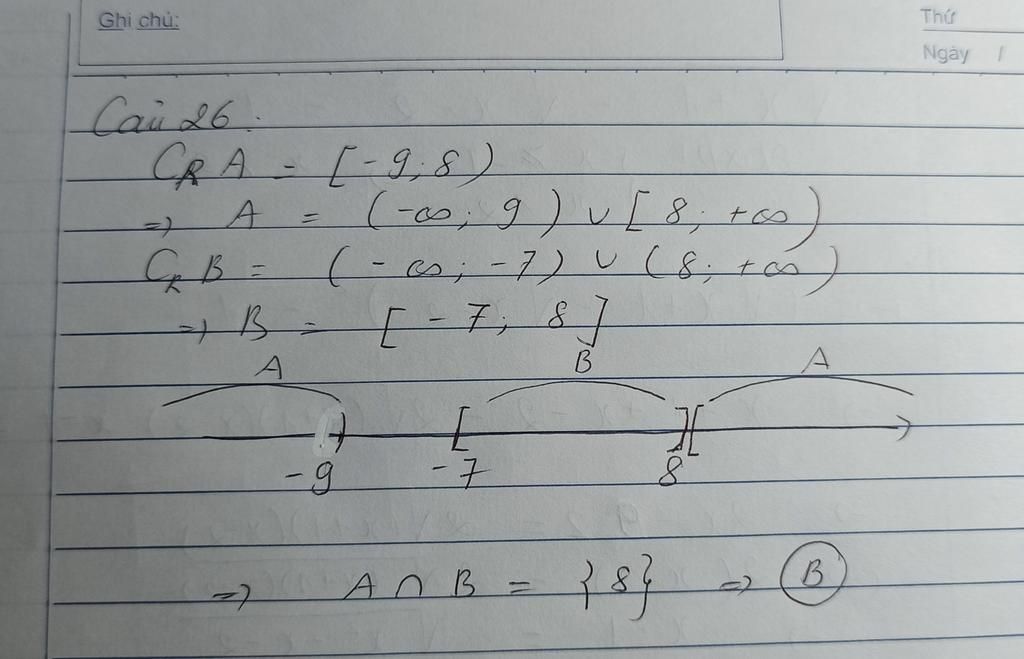 Ghi chú:
Thứ
Ngày /
Câu 26:
C_R A = [-9; 8)
=> A = (-∞; 9) ∪ [8; +∞)
C_R B = (-∞; -7) ∪ (8; +∞)
=> B = [-7; 8]
A B A
) [ ] [
-9 -7 8
=> A ∩ B = {8} => B